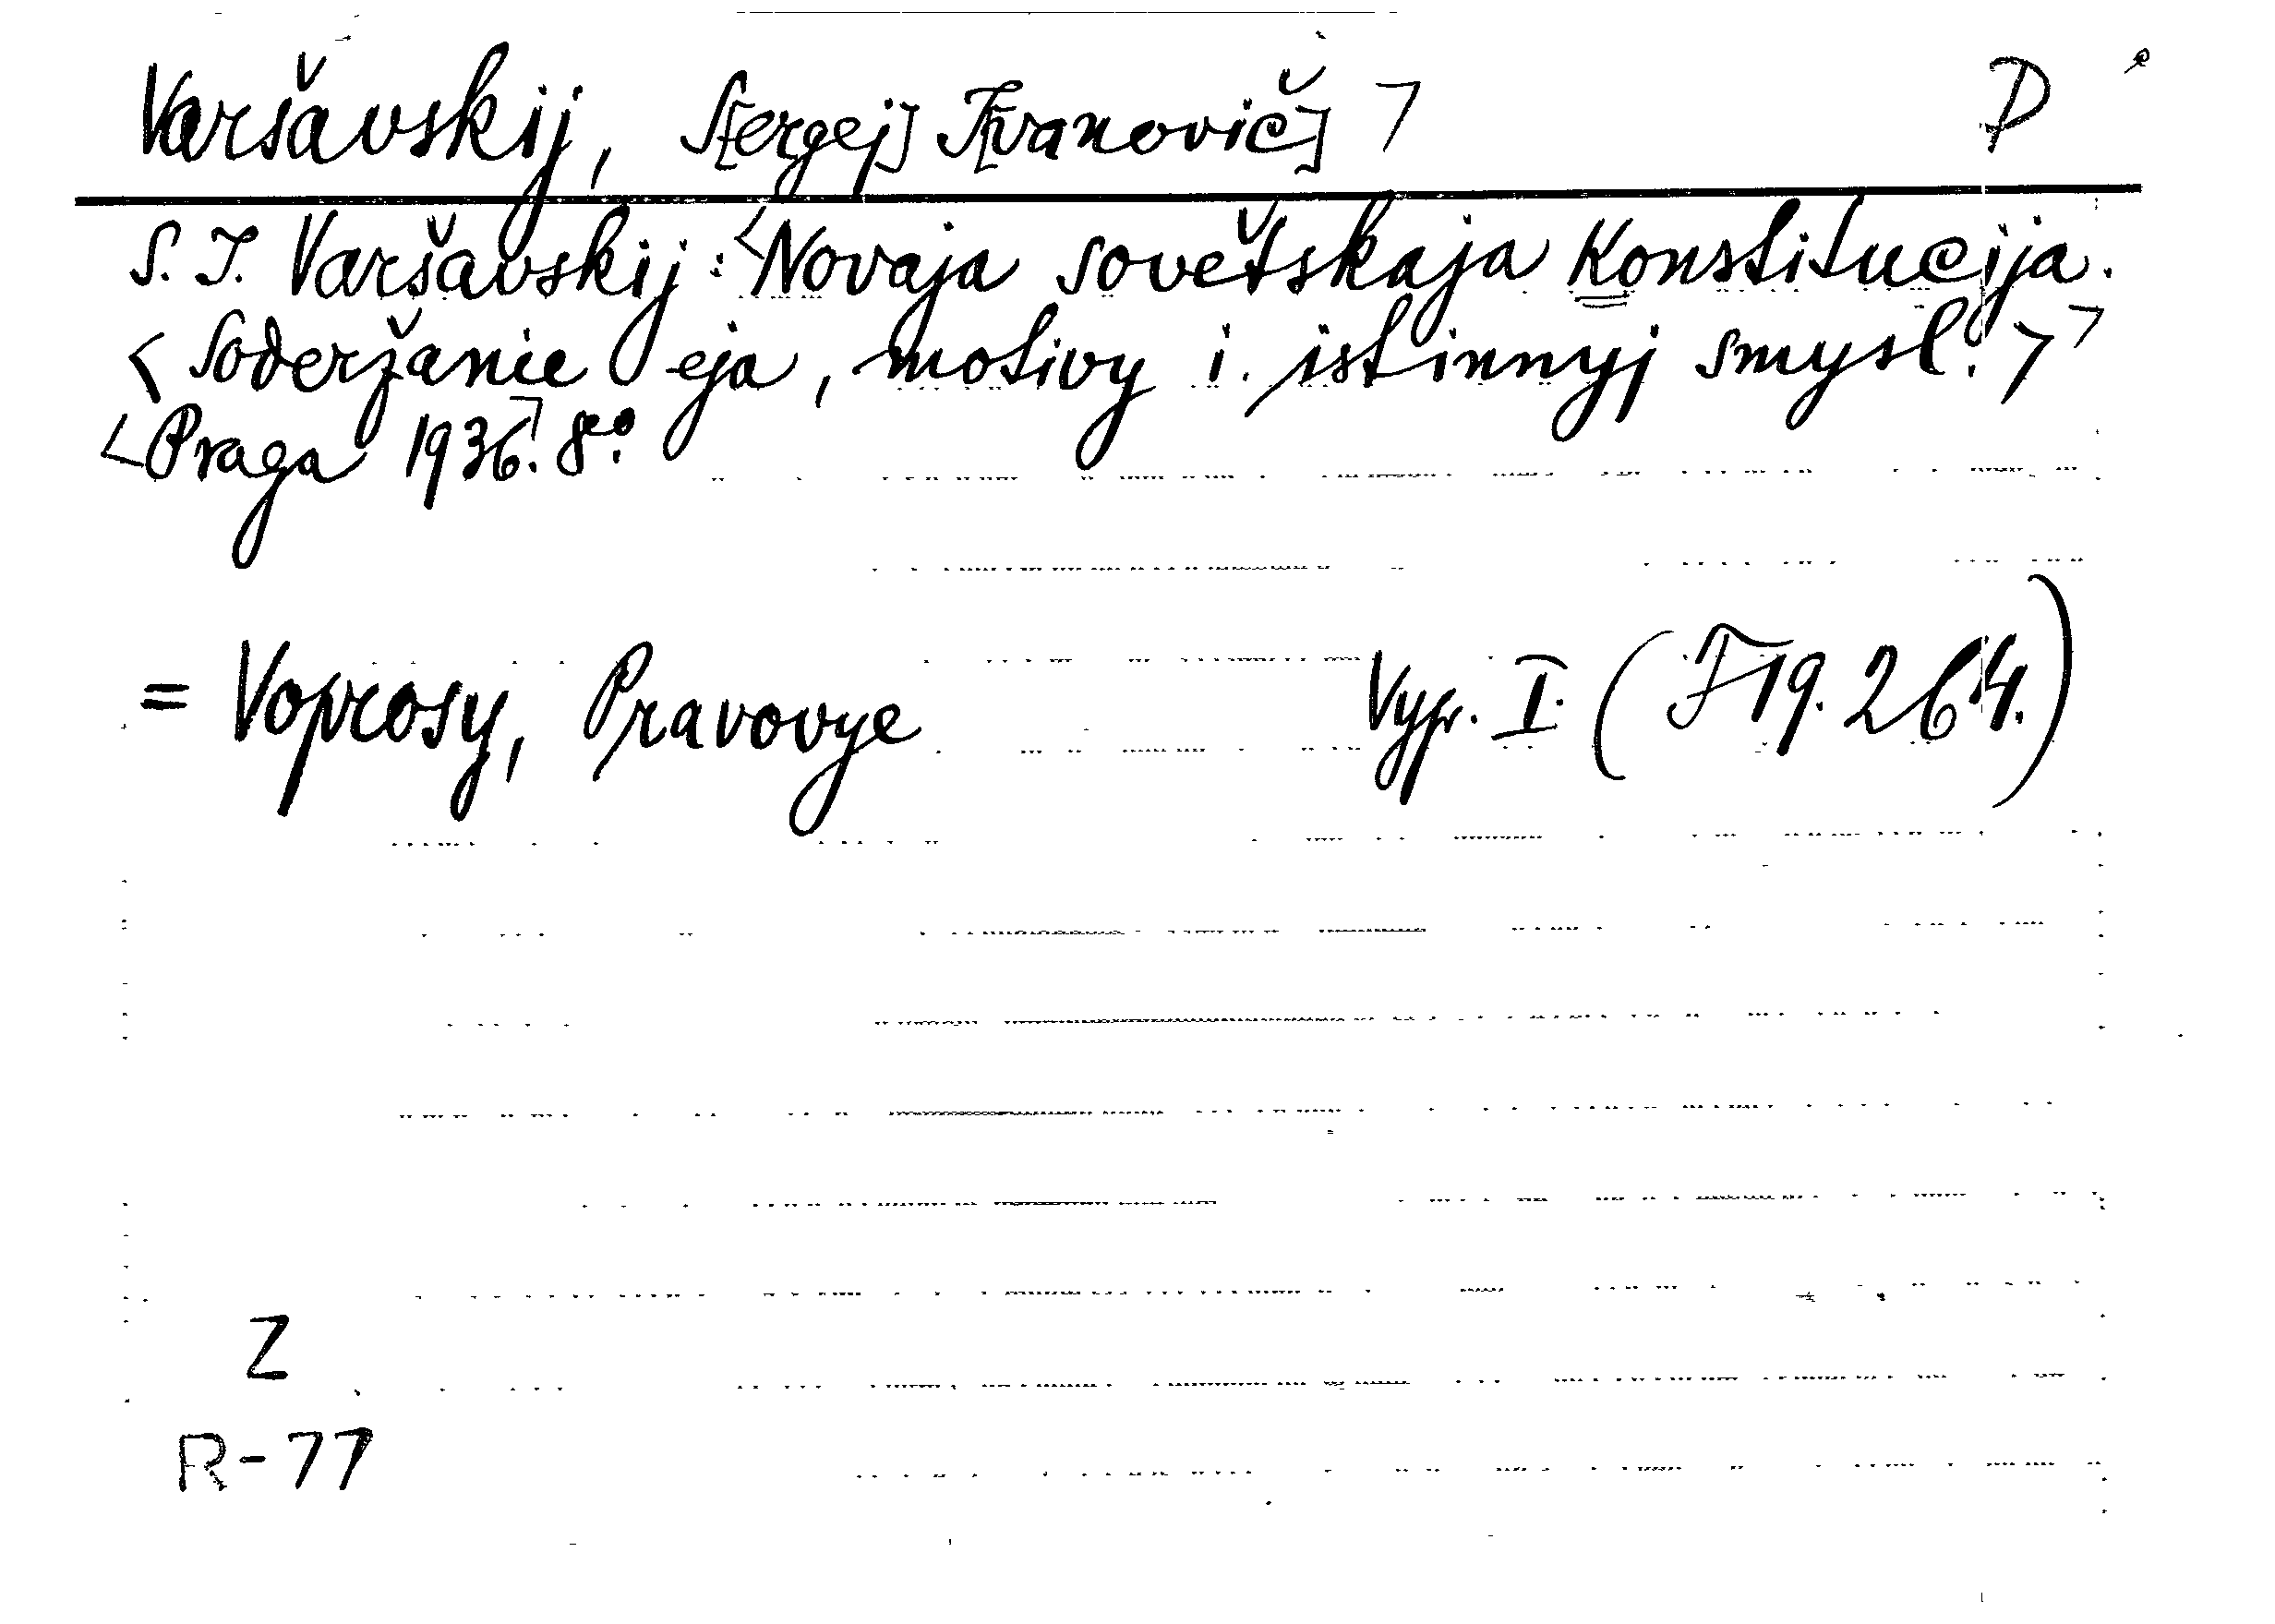 Varšavskij, S[ergej] I[vanovič] > D
S. I. Varšavskij: <Novaja sovětskaja Konstitucija.
<Soderžanie eja, motivy i istinnyj smysl.>>
<Praga 1936>. 8°.
= Voprosy, Pravovye Vyp. I. (F 19.264.)
Z
R-77